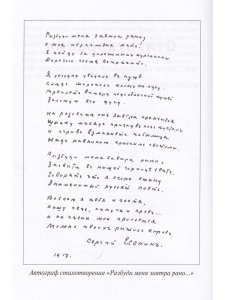 Разбуди меня завтра рано
О моя терпеливая мать!
Я пойду за дорожным курганом
Дорогого гостя встречать.
Я сегодня увидел в пуще
След широких колес на лугу.
Треплет ветер под облачной кущей
Золотую его дугу.
На рассвете он завтра промчится
Шапку-месяц пригнув под кустом
И игриво взмахнет кобылица
Над равниною красным хвостом.
Разбуди меня завтра рано,
Засвети в нашей горнице свет.
Говорят что я скоро стану
Знаменитый русский поэт.
Воспою я тебя и гостя,
Нашу печь, петуха и кров...
И на песни мои прольется
Молоко твоих рыжих коров.
Сергей Есенин.
1917.
Автограф стихотворения «Разбуди меня завтра рано...»